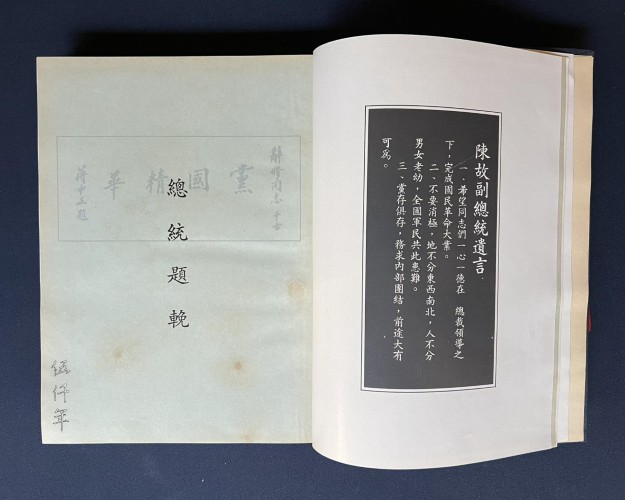 陳故副總統遺言
一、希望同志們一心一德在　總裁領導之
下，完成國民革命大業。
二、不要消極，地不分東西南北，人不分
男女老幼，全國軍民共此患難。
三、黨存俱存，務求內部團結，前途大有
可爲。
辭修同志千古
黨國精華
蔣中正題
總統題輓